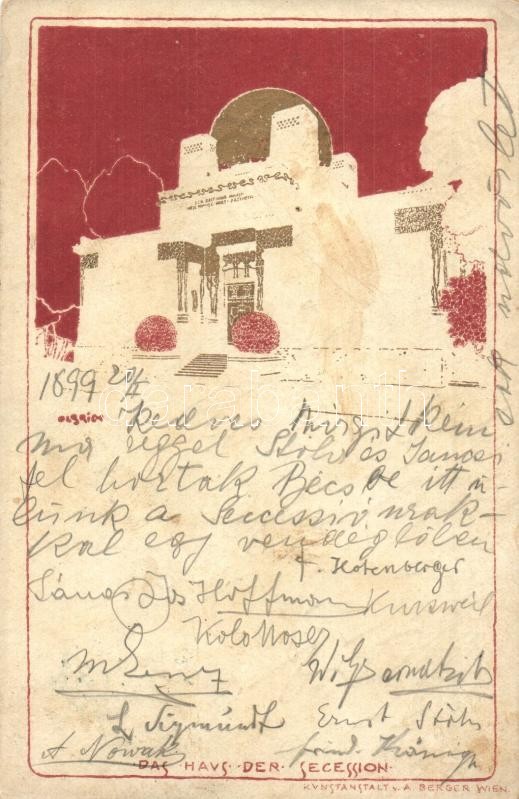 DER ZEIT IHRE KUNST
DER KUNST IHRE FREIHEIT
1899
Olbrich
Kedves
ma reggel Stöhr és Jancsi
fel hoztak Bécsbe itt ü-
lünk a Secessió urak-
kal egy vendéglőben
F. Hohenberger
János Jos Hoffmann Kurzweil
Kolo Moser
M Lenz W. Bernatzik
L Sigmundt Ernst Stöhr
A. Nowak Fried. König
DAS HAVS DER SECESSION
KVNSTANSTALT v. A. BERGER WIEN.
darabanth